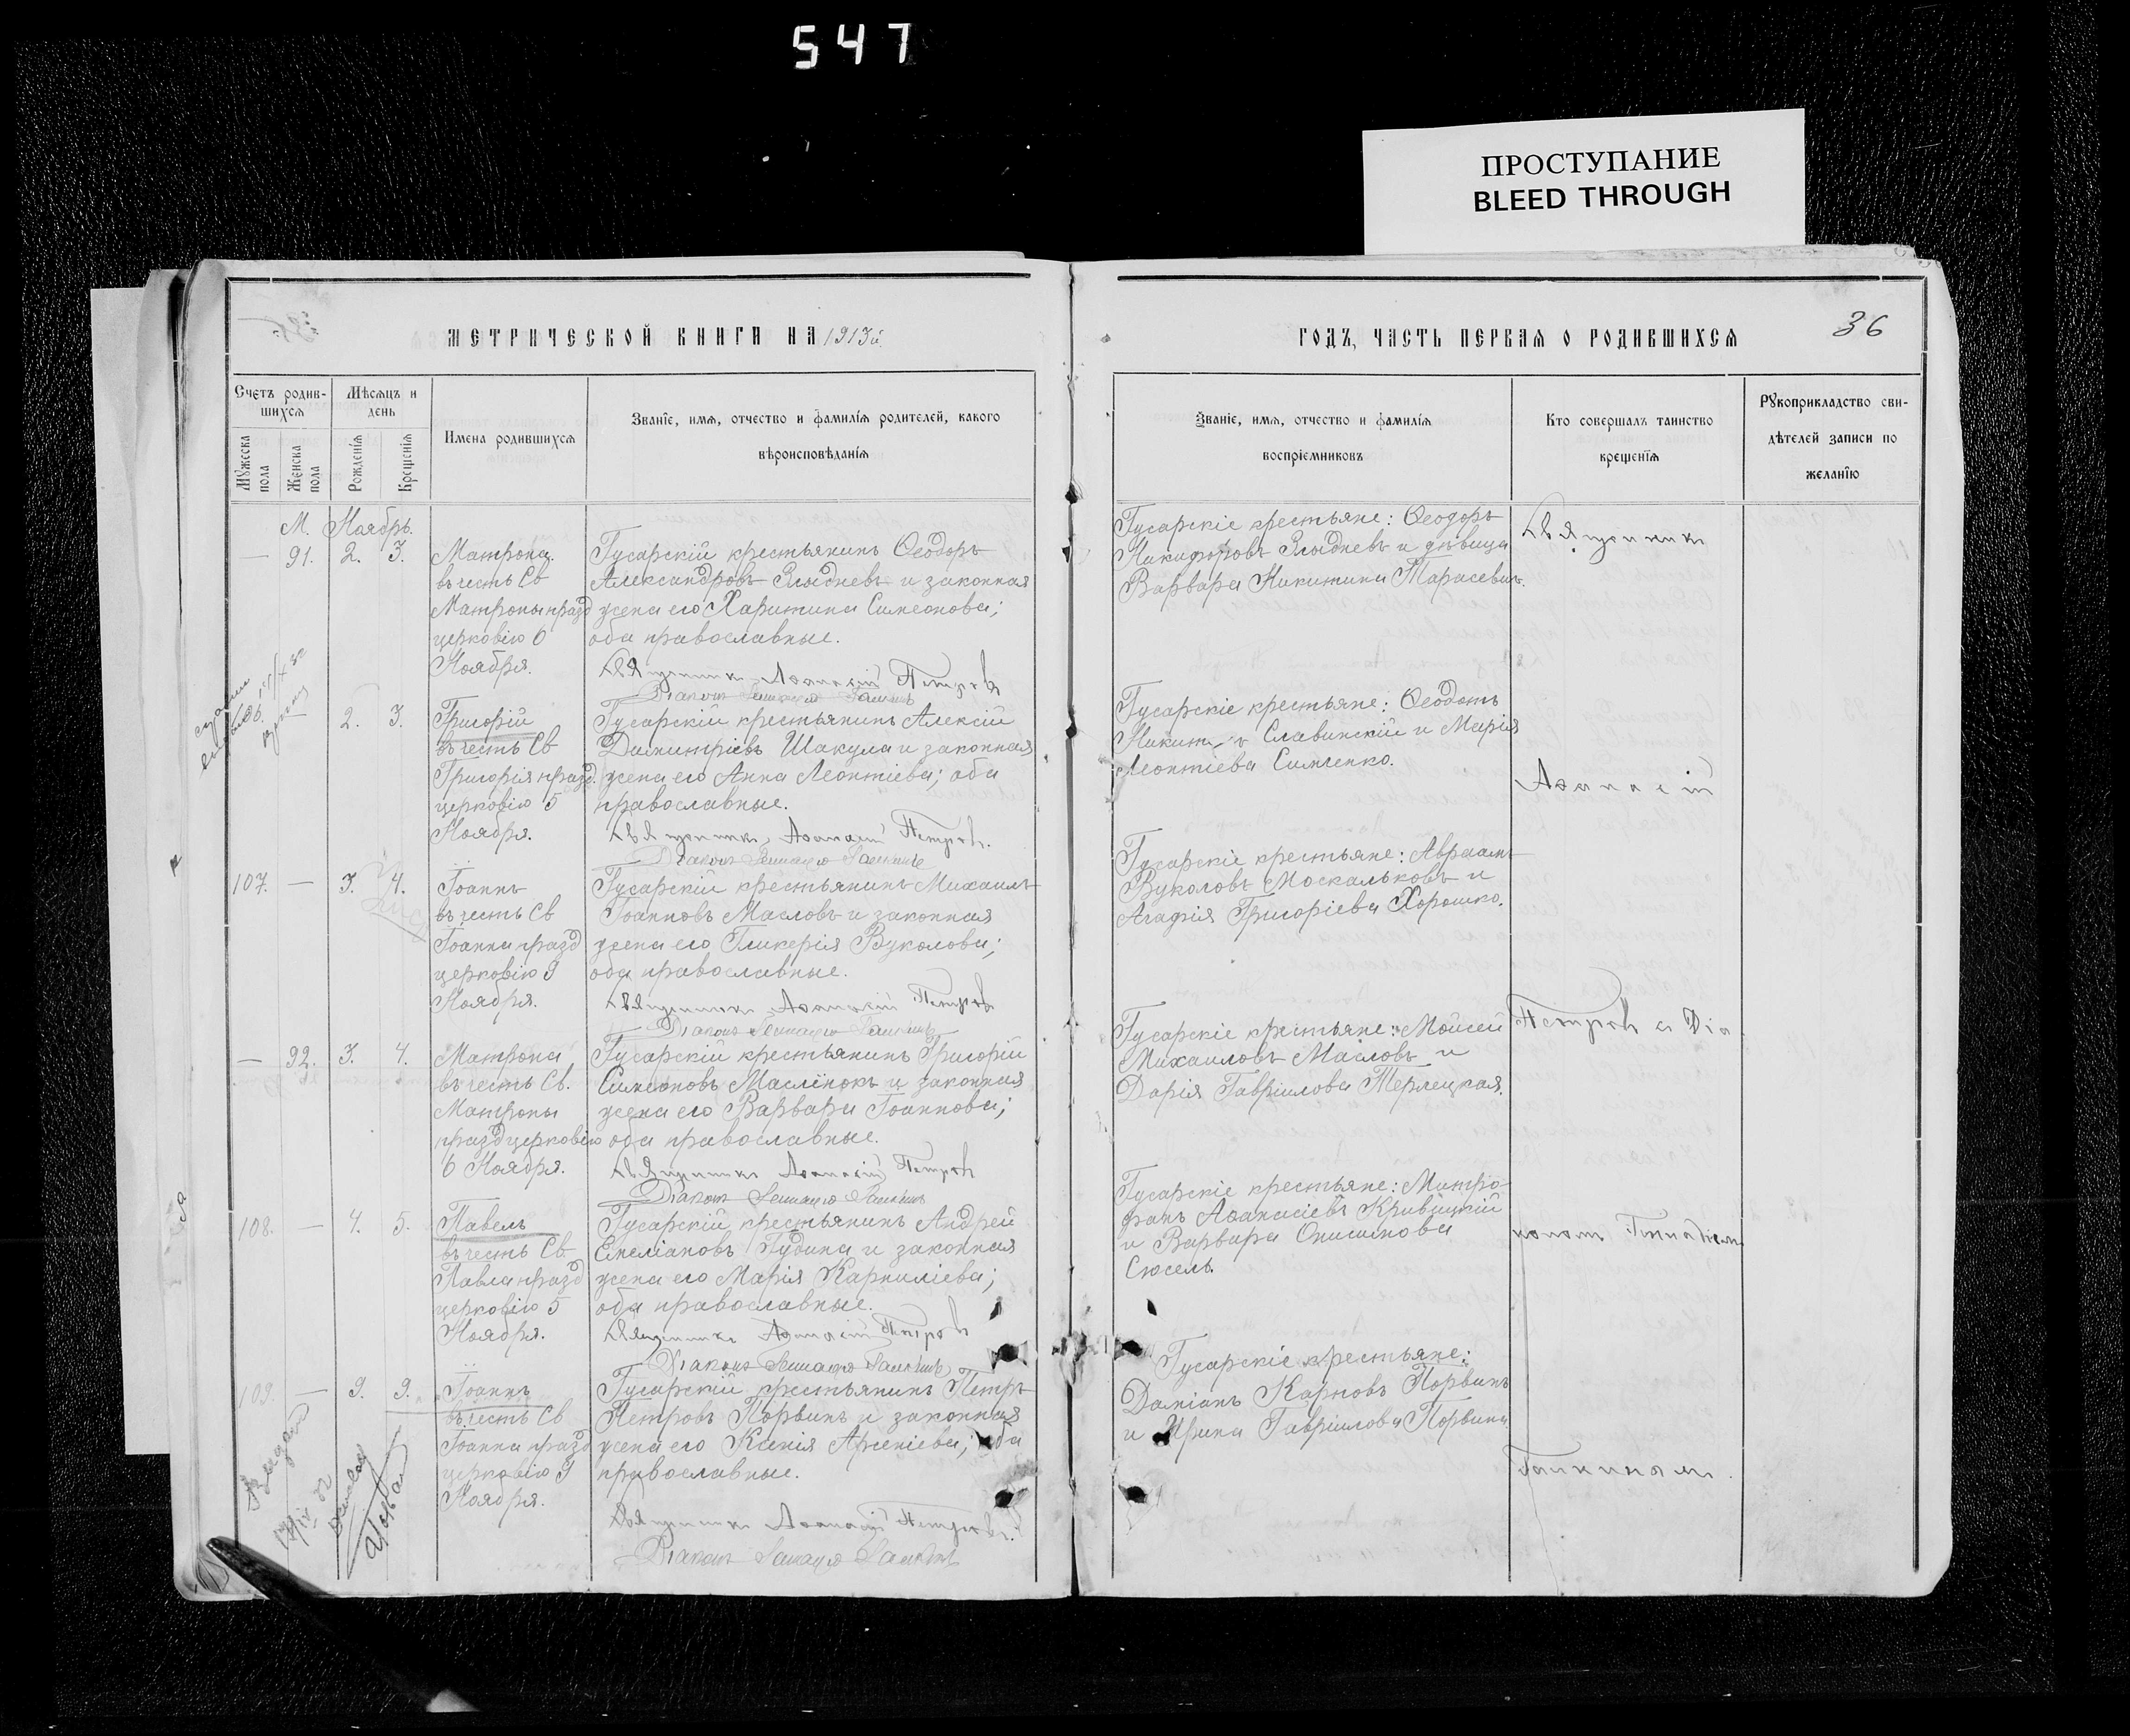 547
ПРОСТУПАНИЕ
BLEED THROUGH
МЕТРИЧЕСКОЙ КНИГИ НА 1913й
ГОДЪ, ЧАСТЬ ПЕРВАЯ О РОДИВШИХСЯ
36
Счетъ родив-
шихся
Мѣсяцъ и
день
Мужеска
пола
Женска
пола
Рожденїя
Крещенїя
Имена родившихся
Званїе, имя, отчество и фамилїя родителей, какого
вѣроисповѣданїя
Званїе, имя, отчество и фамилїя
воспрїемниковъ
Кто совершалъ таинство
крещенїя
Рукоприкладство сви-
дѣтелей записи по
желанїю
М. Ноябрь.
— 91. 2. 3.
Матрона
въ честь Св
Матроны празд
церковію 6
Ноября.
Гусарскій крестьянинъ Ѳеодоръ
Александровъ Злыдневъ и законная
жена его Харитина Симеонова;
оба православные.
Священникъ Аѳанасій Петровъ
Діаконъ Геннадій Галкинъ
Гусарскіе крестьяне: Ѳеодоръ
Никифоровъ Злыдневъ и дѣвица
Варвара Никитина Тарасевич.
Священникъ
106. — 2. 3.
Григорій
въ честь Св
Григорія празд.
церковію 5
Ноября.
Гусарскій крестьянинъ Алексій
Димитріевъ Шакула и законная
жена его Анна Леонтіева; оба
православные.
Священникъ Аѳанасій Петровъ.
Діаконъ Геннадій Галкинъ
Гусарскіе крестьяне: Ѳеодотъ
Славинскій и Марія
Леонтіева Симченко.
Аѳанасій
107. — 3. 4.
Іоаннъ
въ честь Св
Іоанна празд
церковію 9
Ноября.
Гусарскій крестьянинъ Михаилъ
Іоанновъ Масловъ и законная
жена его Гликерія Вуколова;
оба православные.
Священникъ Аѳанасій Петровъ
Діаконъ Геннадій Галкинъ
Гусарскіе крестьяне: Авраамъ
Вуколовъ Москальковъ и
Агафія Григоріева Хорошко.
— 92. 3. 4.
Матрона
въ честь Св.
Матроны
празд церковію
6 Ноября.
Гусарскій крестьянинъ Григорій
Симеоновъ Маслёнокъ и законная
жена его Варвара Іоаннова;
оба православные.
Священникъ Аѳанасій Петровъ
Діаконъ Геннадій Галкинъ
Гусарскіе крестьяне: Мойсей
Михаиловъ Масловъ и
Дарія Гавріилова Терлецкая.
Петровъ съ Діа
108. — 4. 5.
Павелъ
въ честь Св
Павла празд
церковію 5
Ноября.
Гусарскій крестьянинъ Андрей
Емеліановъ Гудина и законная
жена его Марія Карниліева;
оба православные.
Священникъ Аѳанасій Петровъ
Діаконъ Геннадій Галкинъ
Гусарскіе крестьяне: Митро-
фанъ Аѳанасіевъ Кривицкій
и Варвара Онисимова
Сюсель.
кономъ Геннадіемъ
109. — 9. 9.
Іоаннъ
въ честь Св
Іоанна празд
церковію 9
Ноября.
Гусарскій крестьянинъ Петръ
Петровъ Порвинъ и законная
жена его Ксенія Арсеніева; оба
православные.
Священникъ Аѳанасій Петровъ.
Діаконъ Геннадій Галкинъ
Гусарскіе крестьяне:
Даміанъ Карповъ Порвинъ
и Ирина Гавріилова Порвина
Галкинамъ.